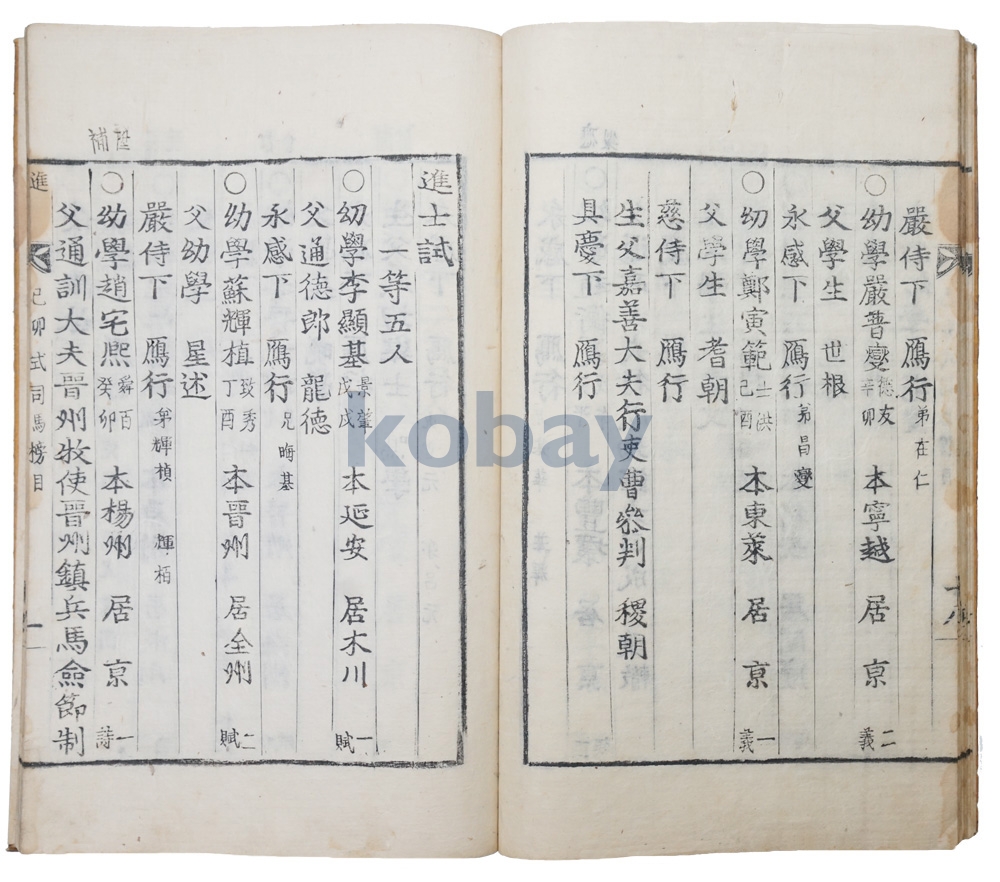 嚴侍下 鴈行 弟在仁
○幼學嚴普燮 德友 辛卯 本寧越 居京 二義
父學生 世根
永感下 鴈行 弟昌燮
○幼學鄭寅範 士洪 己酉 本東萊 居京 一義
父學生 耆朝
慈侍下 鴈行
生父嘉善大夫行吏曹參判 稷朝
具慶下 鴈行
進士試
一等五人
○幼學李顯基 景肇 戊戌 本延安 居木川 一賦
父通德郎 龍德
永感下 鴈行 兄晦基
○幼學蘇輝植 致秀 丁酉 本晉州 居全州 二賦
父幼學 星述
嚴侍下 鴈行 弟輝楨 輝栢
○幼學趙宅熙 舜百 癸卯 本楊州 居京 一詩
父通訓大夫晉州牧使晉州鎭兵馬僉節制
進 己卯式司馬榜目 一
補
kobay